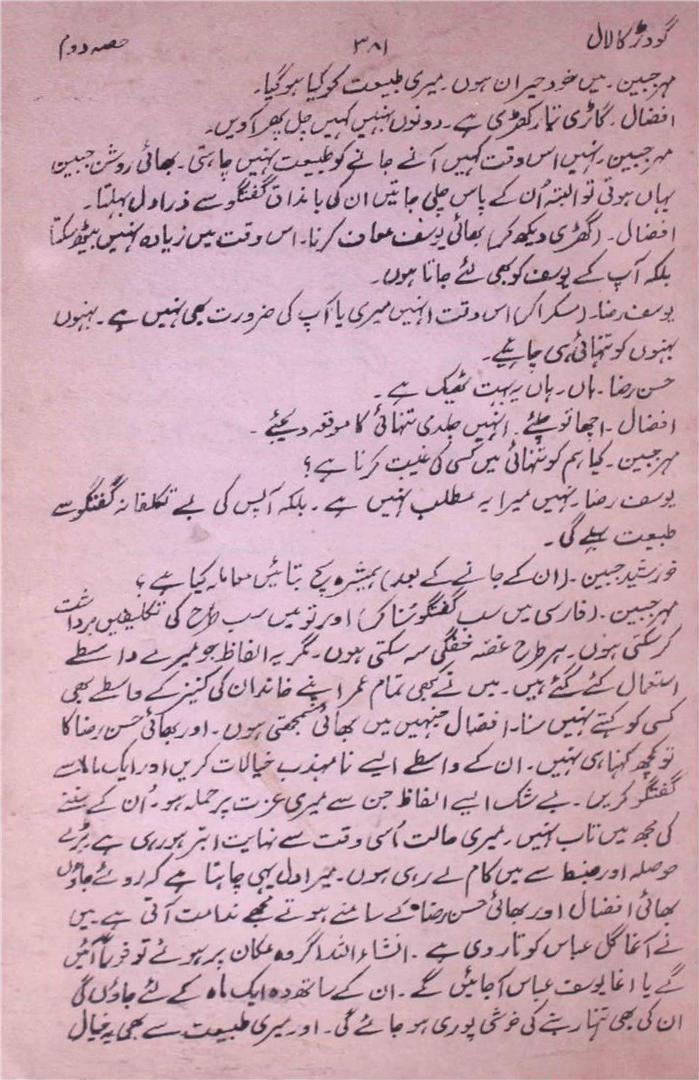 گودڑ کا لال ۳۸۱ حصہ دوم
مہرجبین۔ میں خود حیران ہوں۔ میری طبیعت کو کیا ہوگیا۔
افضال۔ گاڑی تیار کھڑی ہے۔ دونوں بہنیں کہیں چل پھر آویں۔
مہرجبین۔ نہیں اس وقت کہیں آنے جانے کو طبیعت نہیں چاہتی۔ بھائی روشن جبین
یہاں ہوتی تو البتہ اُن کے پاس چلی جاتیں ان کی بامذاق گفتگو سے ذرا دل بہلتا۔
افضال۔ (گھڑی دیکھ کر) بھائی یوسف معاف کرنا۔ اس وقت میں زیادہ نہیں بیٹھ سکتا
بلکہ آپ کے یوسف کو بھی لئے جاتا ہوں۔
یوسف رضا۔ (مسکرا کر) اس وقت انہیں میری یا آپ کی ضرورت بھی نہیں ہے۔ بہنوں
بہنوں کو تنہائی ہی چاہئیے۔
حسن رضا۔ ہاں۔ ہاں یہ بہت ٹھیک ہے۔
افضال۔ اچھا تو چلئے۔ انہیں جلدی تنہائی کا موقعہ دیجئے۔
مہرجبین۔ کیا ہم کو تنہائی میں کسی کی غیبت کرنا ہے؟
یوسف رضا۔ نہیں میرا یہ مطلب نہیں ہے۔ بلکہ آپس کی بے تکلفانہ گفتگو سے
طبیعت بہلے گی۔
خورشید جبین۔ (ان کے جانے کے بعد) ہمشیرہ سچ بتائیں معاملہ کیا ہے؟
مہرجبین۔ (فارسی میں سب گفتگو سُنا کر) اور تو میں سب طرح کی تکلیفیں برداشت
کر سکتی ہوں۔ ہر طرح غصہ خفگی سہ سکتی ہوں۔ مگر یہ الفاظ جو میرے واسطے
استعمال کئے گئے ہیں۔ میں نے کبھی تمام عمر اپنے خاندان کی کنیز کے واسطے بھی
کسی کو کہتے نہیں سنا۔ افضال جنہیں میں بھائی سمجھتی ہوں۔ اور بھائی حسن رضا کا
تو کچھ کہنا ہی نہیں۔ ان کے واسطے ایسے نامہذب خیالات کریں اور ایک ماما سے
گفتگو کریں۔ بے شک ایسے الفاظ جن سے میری عزت پر حملہ ہو۔ اُن کے سننے
کی مجھ میں تاب نہیں۔ میری حالت اُسی وقت سے نہایت ابتر ہو رہی ہے بڑے
حوصلہ اور ضبط سے میں کام لے رہی ہوں۔ میرا دل یہی چاہتا ہے کہ روئے جاؤں
بھائی افضال اور بھائی حسن رضا کے سامنے ہوتے مجھے ندامت آتی ہے۔ میں
نے آغا گل عباس کو تار دی ہے۔ انشاءاللہ اگر وہ مکان پر ہوئے تو فوراً آئیں
گے یا آغا یوسف عباس آجائیں گے۔ ان کے ساتھ دہ ایک ماہ کے لئے جاؤں گی
ان کی بھی تنہا رہنے کی خوشی پوری ہو جائے گی۔ اور میری طبیعت سے بھی یہ خیال